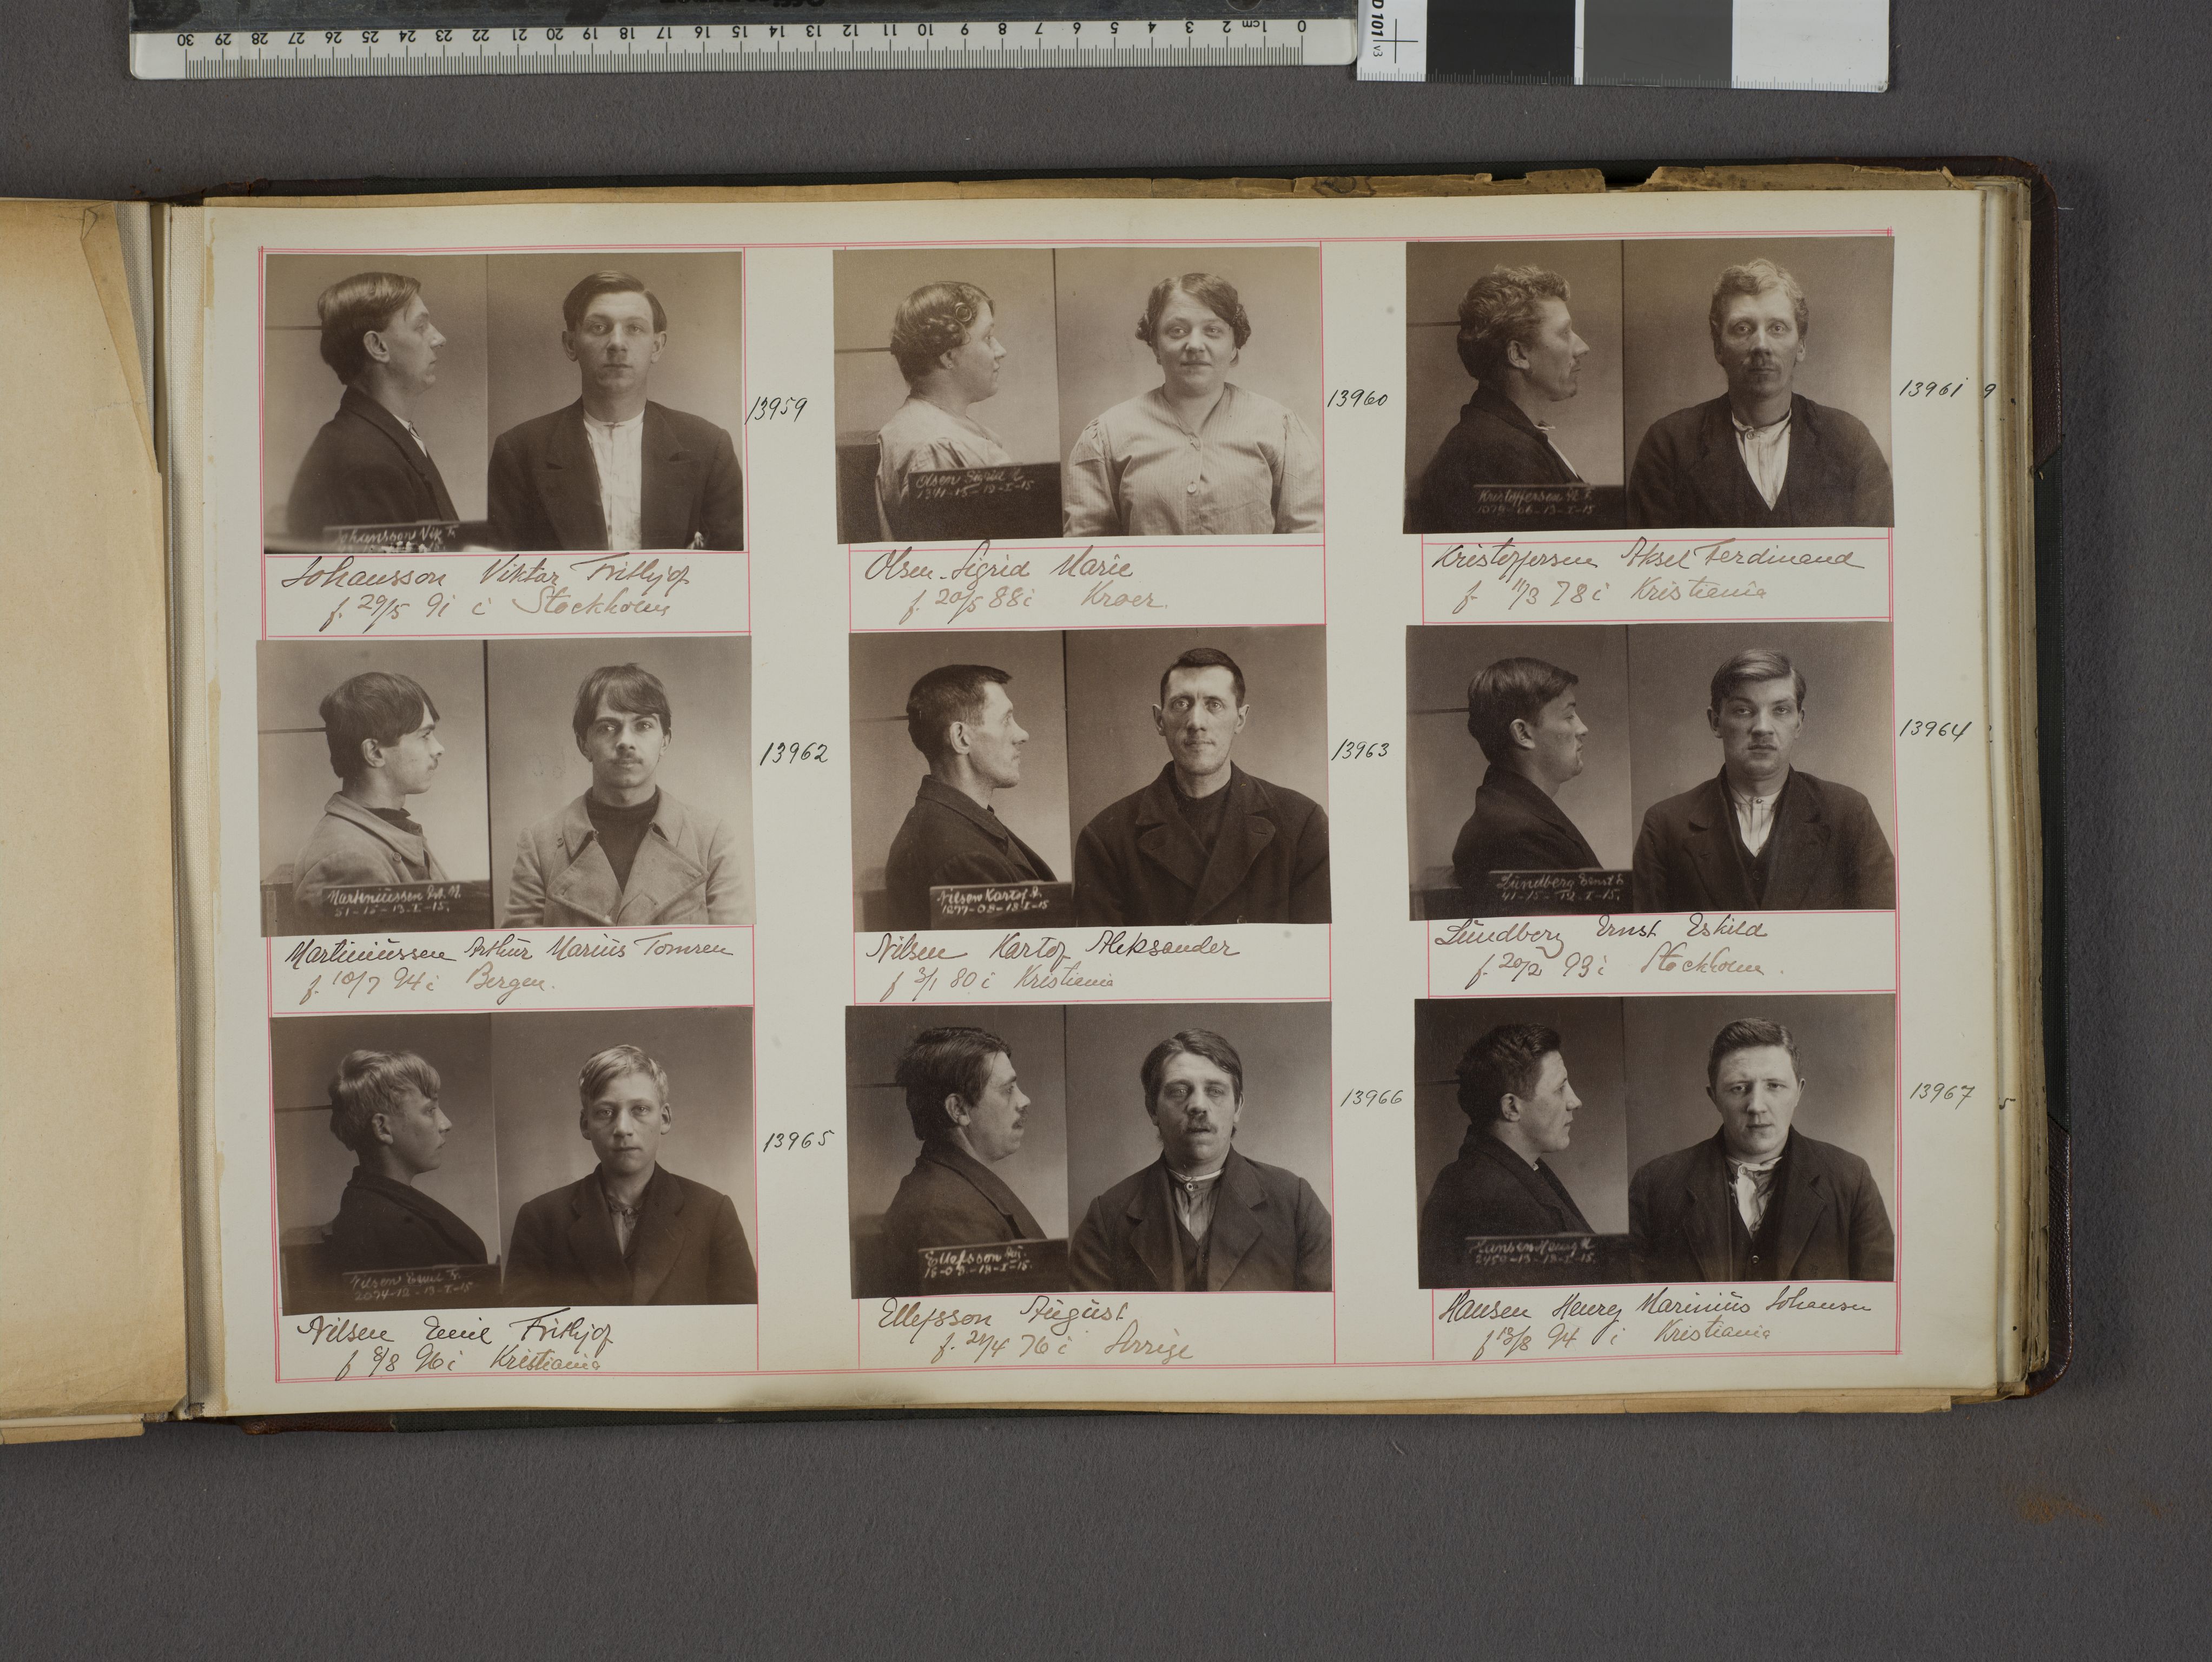 30 29 28 27 26 25 24 23 22 21 20 19 18 17 16 15 14 13 12 11 10 9 8 7 6 5 4 3 2 1cm 0
D 101 v3
Johansson Vik. F.
13959
Johansson Viktor Frithjof
f. 29/5 91 i Stockholm
Olsen Sigrid
1341-15-13-I-15
13960
Olsen Sigrid Marie
f. 20/5 88 i Kroer.
Kristoffersen
1079-06-13-I-15
13961
9
Kristoffersen Aksel Ferdinand
f. 11/3 78 i Kristiania
Martiniussen
51-15-13-I-15.
13962
Martiniussen Arthur Marius Tomren
f. 10/7 94 i Bergen.
Nilsen Kartof A.
1277-08-13-I-15
13963
Nilsen Kartof Aleksander
f 3/1 80 i Kristiania
Lundberg Ernst E
41-15-12-I-15.
13964
Lundberg Ernst Eskild
f. 20/2 93 i Stockholm.
Nilsen Emil Fr.
2074-12-13-I-15
13965
Nilsen Emil Frithjof
f 8/8 96 i Kristiania
Ellefsson
13-I-15.
13966
Ellefsson August
f. 76 i Sverige
Hansen Henry
2450-13-13-I-15.
13967
5
Hansen Henry Marinius Johansen
f 13/8 94 i Kristiania